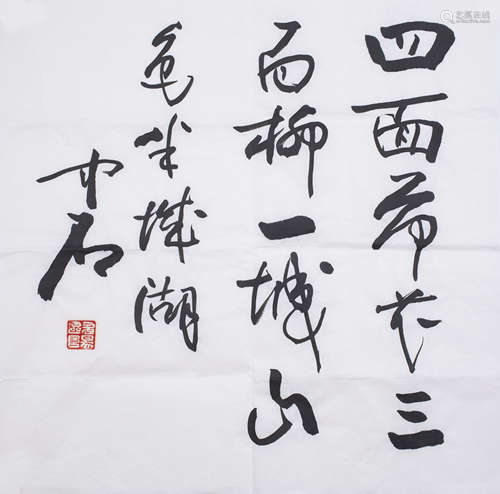 四面荷花三
面柳一城山
色半城湖
中石